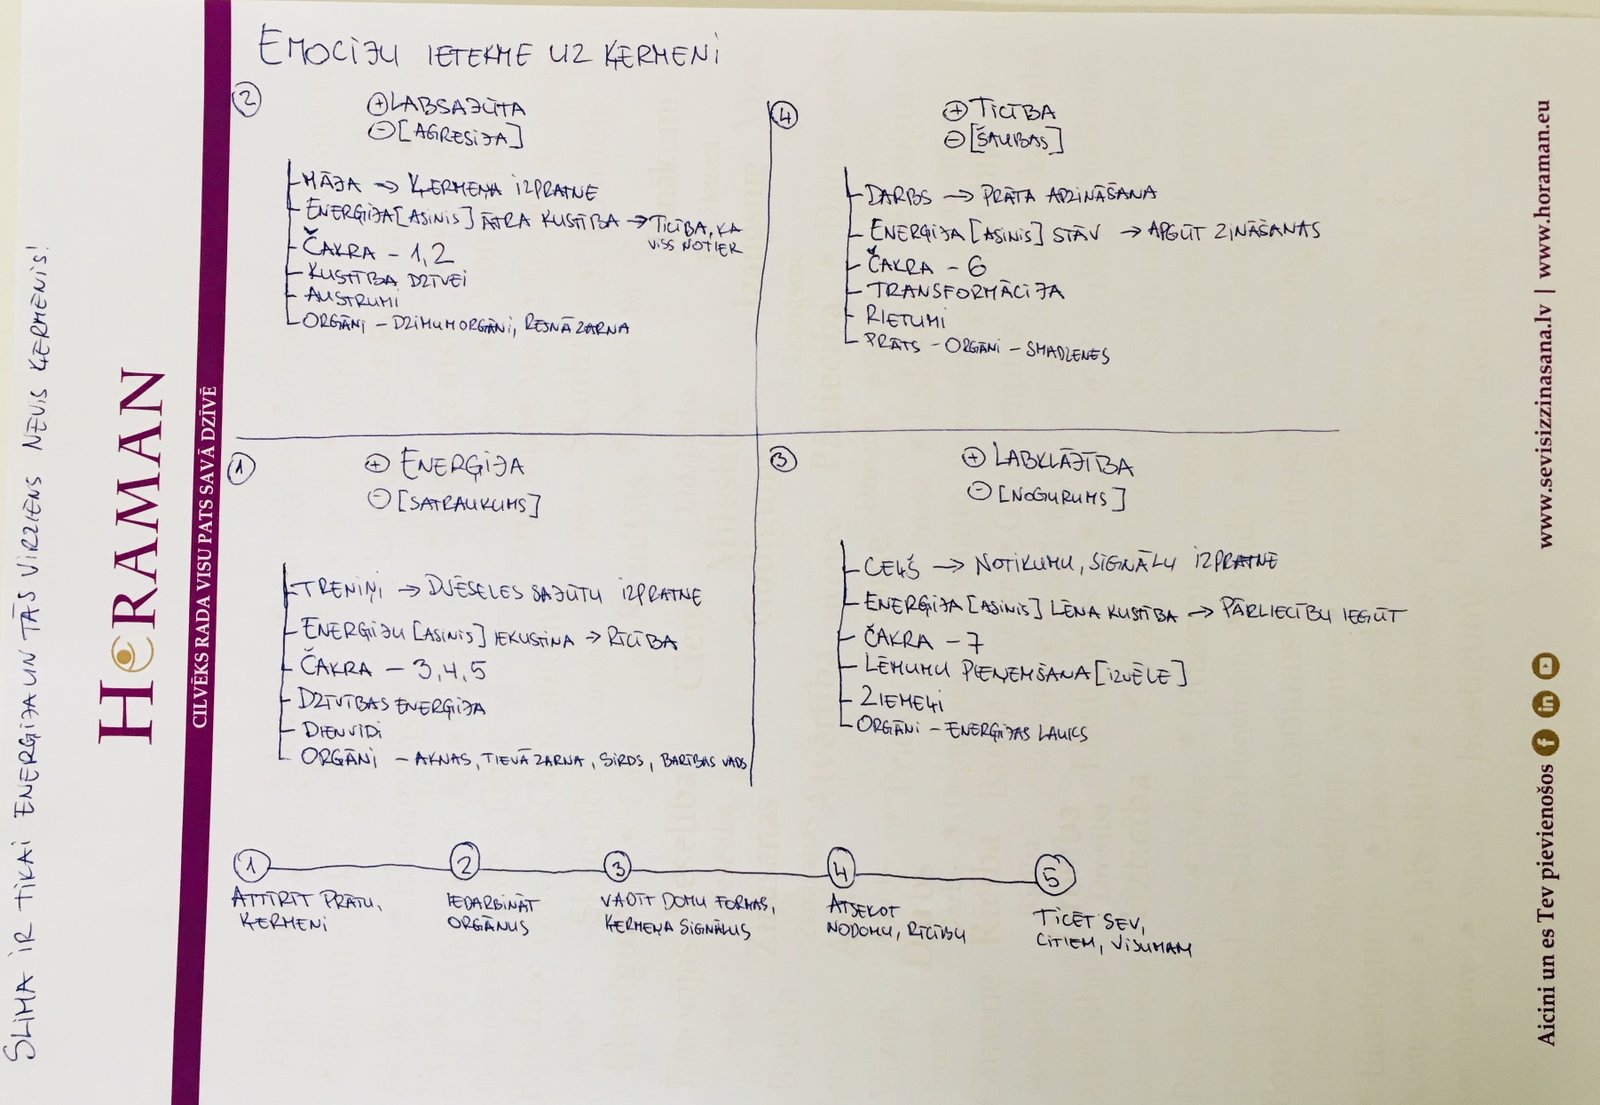 EMOCIJU IETEKME UZ ĶERMENI
②
⊕ LABSAJŪTA
⊖ [AGRESIJA]
MĀJA → ĶERMEŅA IZPRATNE
ENERĢIJA [ASINIS] ĀTRA KUSTĪBA → TICĪBA, KA
VISS NOTIER
ČAKRA - 1, 2
KUSTĪBA DZĪVEI
AUSTRUMI
ORGĀNI - DZIMUMORGĀNI, RESNĀ ZARNA
④
⊕ TICĪBA
⊖ [ŠAUBAS]
DARBS → PRĀTA APZINĀŠANA
ENERĢIJA [ASINIS] STĀV → APGŪT ZINĀŠANAS
ČAKRA - 6
TRANSFORMĀCIJA
RIETUMI
PRĀTS - ORGĀNI - SMADZENES
①
⊕ ENERĢIJA
⊖ [SATRAUKUMS]
TRENIŅI → DVĒSELES SAJŪTU IZPRATNE
ENERĢIJU [ASINIS] IEKUSTINA → RĪCĪBA
ČAKRA - 3, 4, 5
DZĪVĪBAS ENERĢIJA
DIENVIDI
ORGĀNI - AKNAS, TIEVĀ ZARNA, SIRDS, BARĪBAS VADS
③
⊕ LABKLĀJĪBA
⊖ [NOGURUMS]
CEĻŠ → NOTIKUMU, SIGNĀLU IZPRATNE
ENERĢIJA [ASINIS] LĒNA KUSTĪBA → PĀRLIECĪBU IEGŪT
ČAKRA - 7
LĒMUMU PIEŅEMŠANA [IZVĒLE]
ZIEMEĻI
ORGĀNI - ENERĢIJAS LAUKS
① ② ③ ④ ⑤
ATTĪRĪT PRĀTU,
ĶERMENI
IEDARBINĀT
ORGĀNUS
VADĪT DOMU FORMAS,
ĶERMEŅA SIGNĀLUS
ATSEKOT
NODOMU, RĪCĪBU
TICĒT SEV,
CITIEM, VISUMAM
SLIMA IR TIKAI ENERĢIJA UN TĀS VIRZIENS NEVIS ĶERMENIS!
HORAMAN
CILVĒKS RADA VISU PATS SAVĀ DZĪVĒ
Aicini un es Tev pievienošos f in www.sevisizzinasana.lv | www.horaman.eu